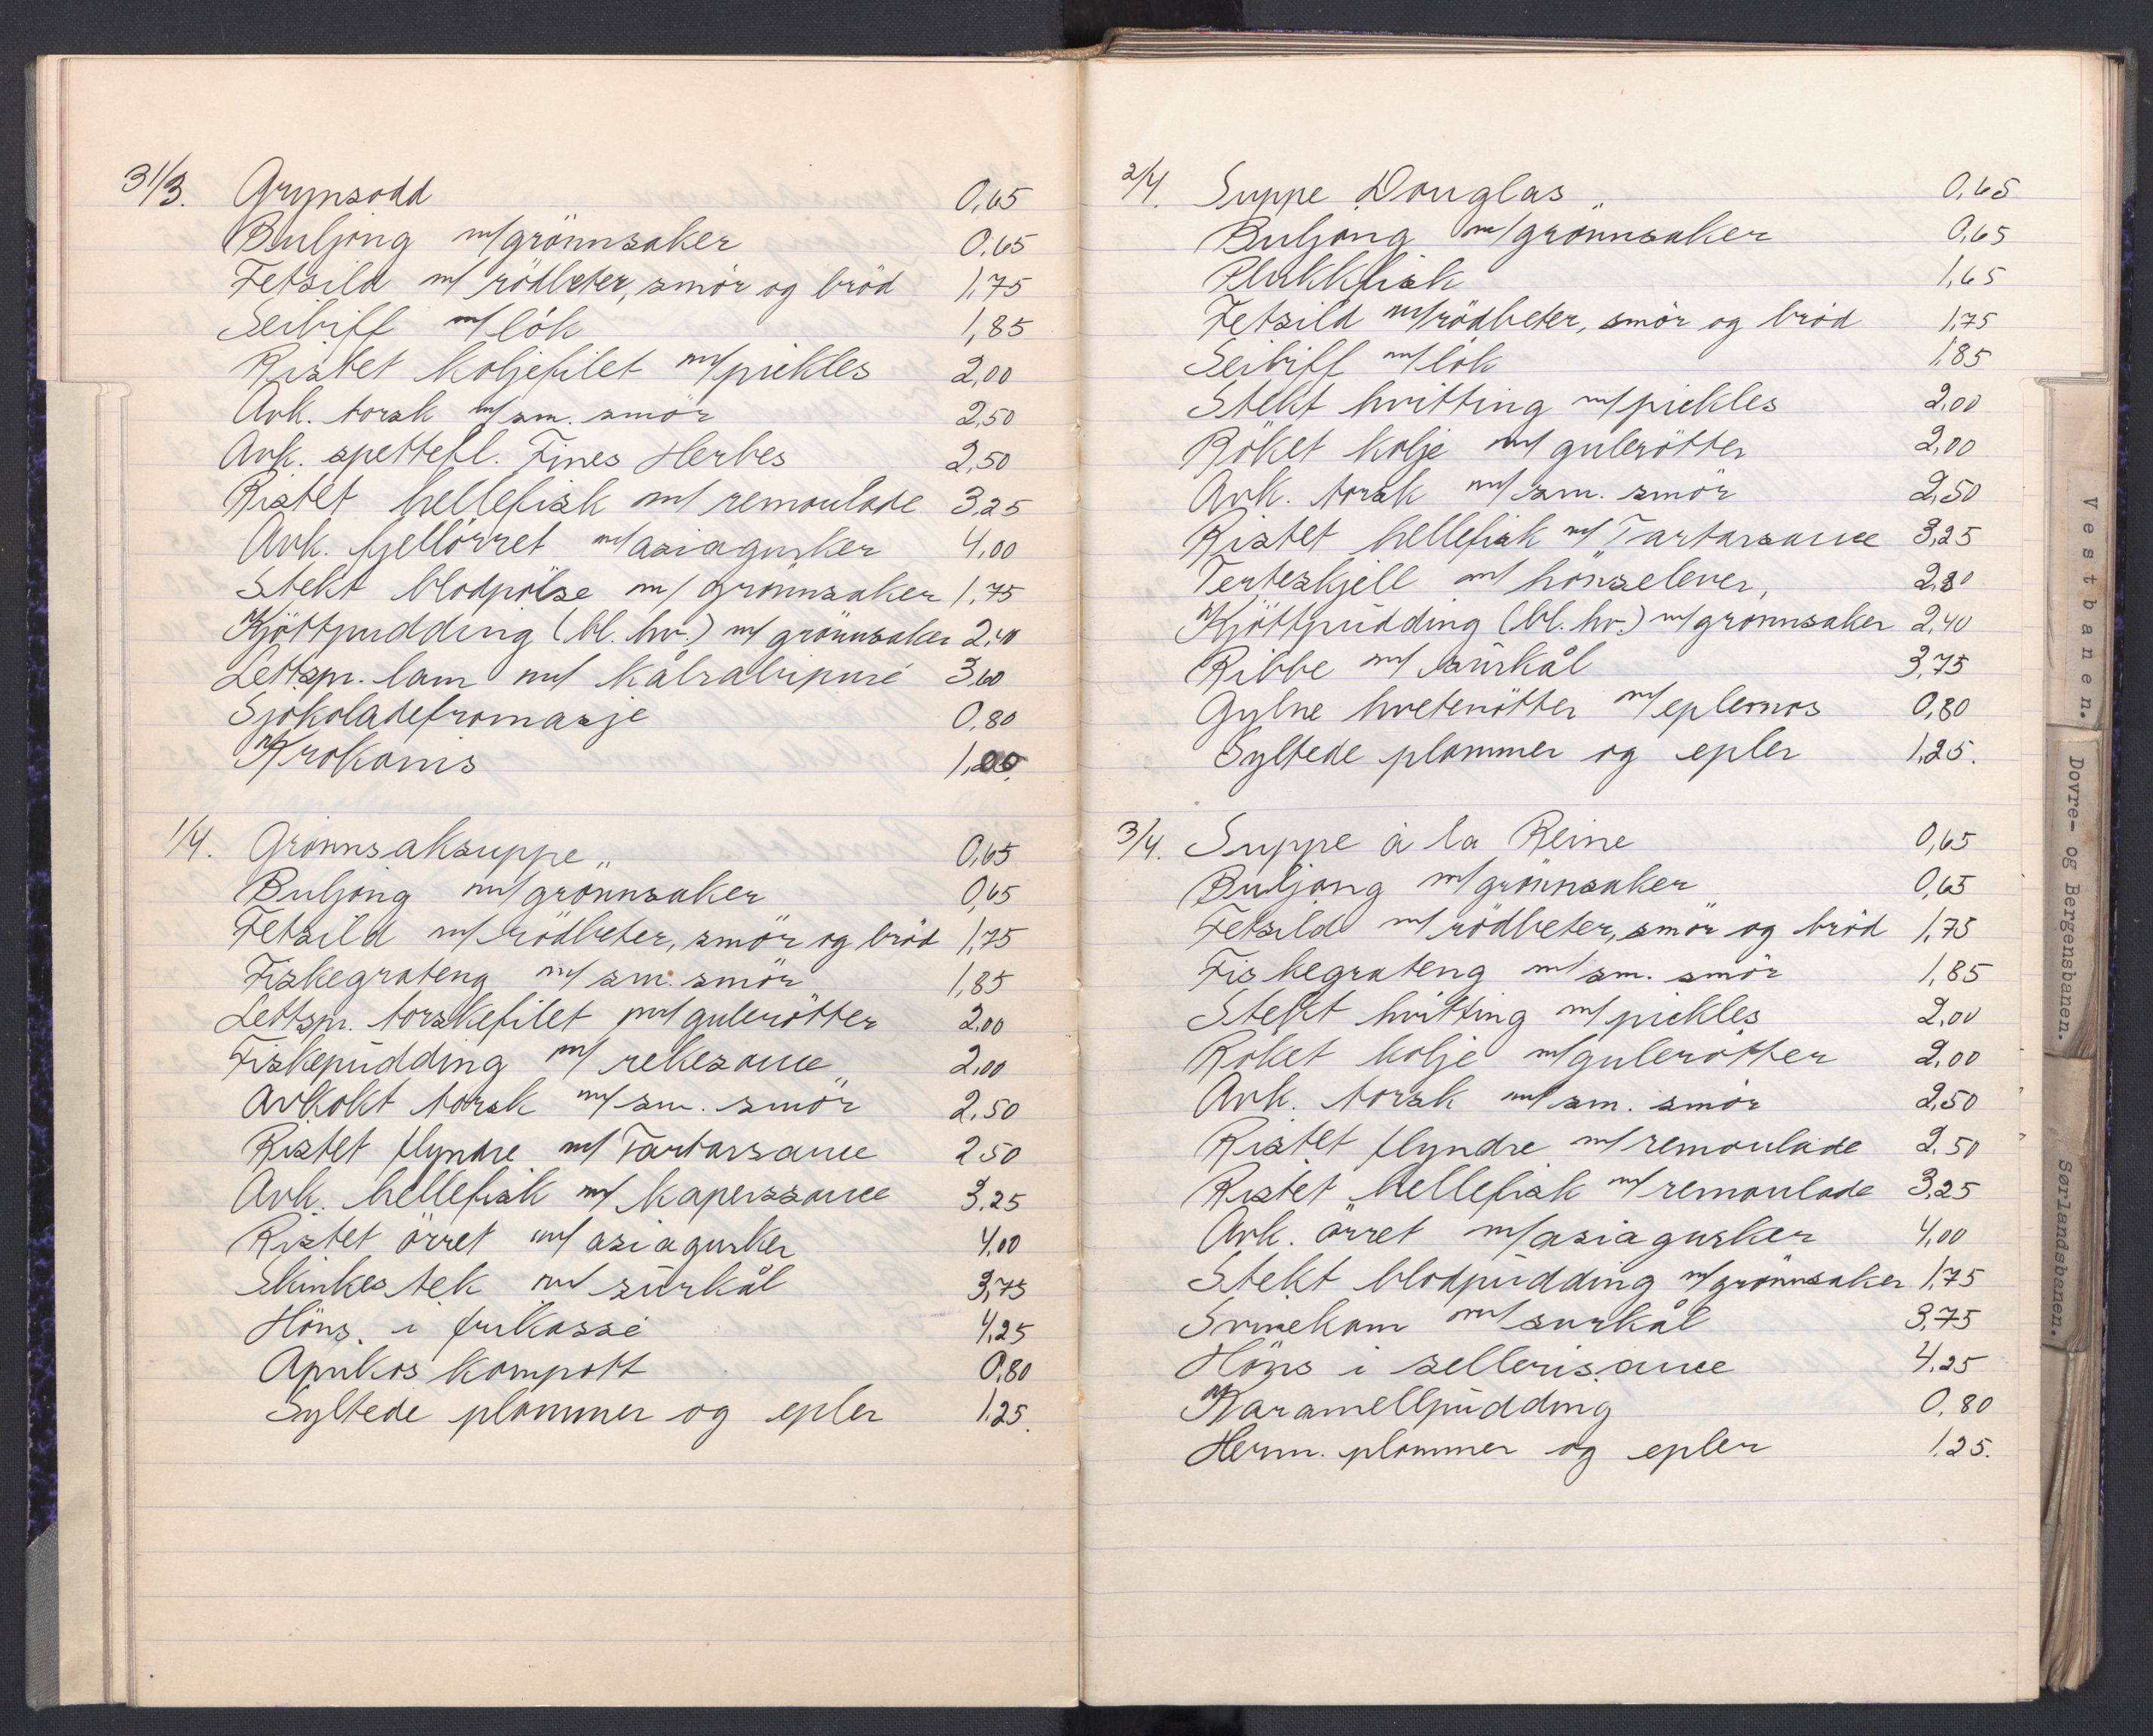 31/3. Grynsodd 0,65
Buljong m/grönnsaker 0,65
Fetsild m/ rödbeter, smör og bröd 1,75
Seibiff m/lök 1,85
Ristet koljefilet m/pickles 2,00
Avk. torsk m/sm. smör 2,50
Avk. spettefl. Fines Herbes 2,50
Ristet hellefisk m/ remoulade 3,25
Avk. fjellörret m/asiagurker 4,00
Stekt blodpölse m/ grönnsaker 1,75
Kjöttpudding (bl. hv.) m/ grönnsaker 2,40
Lettspr. lam m/ kålrabipuré 3,60
Sjokoladefromasje 0,80
Krokanis 1,00
1/4. Grönnsaksuppe 0,65
Buljong m/grönnsaker 0,65
Fetsild m/rödbeter, smör og bröd 1,75
Fiskegrateng m/ sm. smör 1,85
Lettspr. torskefilet m/gulerötter 2,00
Fiskepudding m/ rekesauce 2,00
Avkokt torsk m/sm. smör 2,50
Ristet flyndre m/Tartarsauce 2,50
Avk. hellefisk m/ kaperssauce 3,25
Ristet örret m/ asiagurker 4,00
Skinkestek m/ surkål 3,75
Höns i frikassé 4,25
Aprikoskompott 0,80
Syltede plommer og epler 1,25.
2/4. Suppe Douglas 0,65
Buljong m/grönnsaker 0,65
Plukkfisk 1,65
Fetsild m/rödbeter, smör og bröd 1,75
Seibiff m/lök 1,85
Stekt hvitting m/pickles 2,00
Röket kolje m/ gulerötter 2,00
Avk. torsk m/sm. smör 2,50
Ristet hellefisk m/ Tartarsauce 3,25
Terteskjell m/ hönselever,
Kjöttpudding (bl. hv.) m/grönnsaker 2,40
Ribbe m/ surkål 3,75
Gylne hvetenötter m/eplemos 0,80
Syltede plommer og epler 1,25.
3/4. Suppe à la Reine 0,65
Buljong m/grönnsaker 0,65
Fetsild m/rödbeter, smör og bröd 1,75
Fiskegrateng m/sm. smör 1,85
Stekt hvitting m/pickles 2,00
Röket kolje m/gulerötter 2,00
Avk. torsk m/sm. smör 2,50
Ristet flyndre m/remoulade 2,50
Ristet hellefisk m/remoulade 3,25
Avk. örret m/asiagurker 4,00
Stekt blodpudding m/grönnsaker 1,75
Svinekam m/surkål 3,75
Höns i sellerisauce 4,25
Karamellpudding 0,80
Herm. plommer og epler 1,25.
Vestbanen.
Dovre- og Bergensbanen.
Sørlandsbanen.